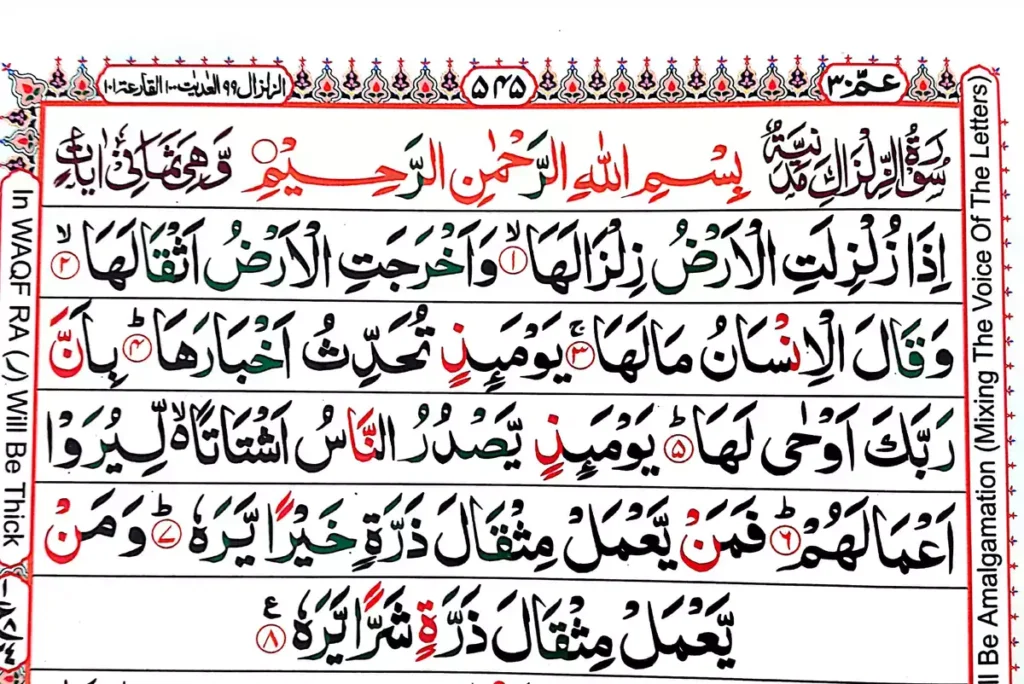 عمّ ٣٠
۵۴۵
الزلزال ٩٩ العديت ١٠٠ القارعة ١٠١
سُوْرَةُ الزِّلْزَالِ مَدَنِيَّةٌ
بِسْمِ اللّٰهِ الرَّحْمٰنِ الرَّحِيْمِ
وَّهِىَ ثَمَانِىْ اٰيَاتٍ
اِذَا زُلْزِلَتِ الْاَرْضُ زِلْزَالَهَا ۙ‏﴿۱﴾ وَاَخْرَجَتِ الْاَرْضُ اَثْقَالَهَا ۙ‏﴿۲﴾
وَقَالَ الْاِنْسَانُ مَا لَهَا ۚ‏﴿۳﴾ يَوْمَئِذٍ تُحَدِّثُ اَخْبَارَهَا ؕ‏﴿۴﴾ بِاَنَّ
رَبَّكَ اَوْحٰى لَهَا ؕ‏﴿۵﴾ يَوْمَئِذٍ يَّصْدُرُ النَّاسُ اَشْتَاتًا ۙ۬ لِّيُرَوْا
اَعْمَالَهُمْ ؕ‏﴿۶﴾ فَمَنْ يَّعْمَلْ مِثْقَالَ ذَرَّةٍ خَيْرًا يَّرَهٗ ؕ‏﴿۷﴾ وَمَنْ
يَّعْمَلْ مِثْقَالَ ذَرَّةٍ شَرًّا يَّرَهٗ ‏﴿۸﴾ ع
In WAQF RA (ر) Will Be Thick
ll Be Amalgamation (Mixing The Voice Of The Letters)